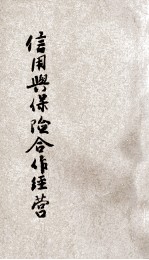 信用與保險合作經营